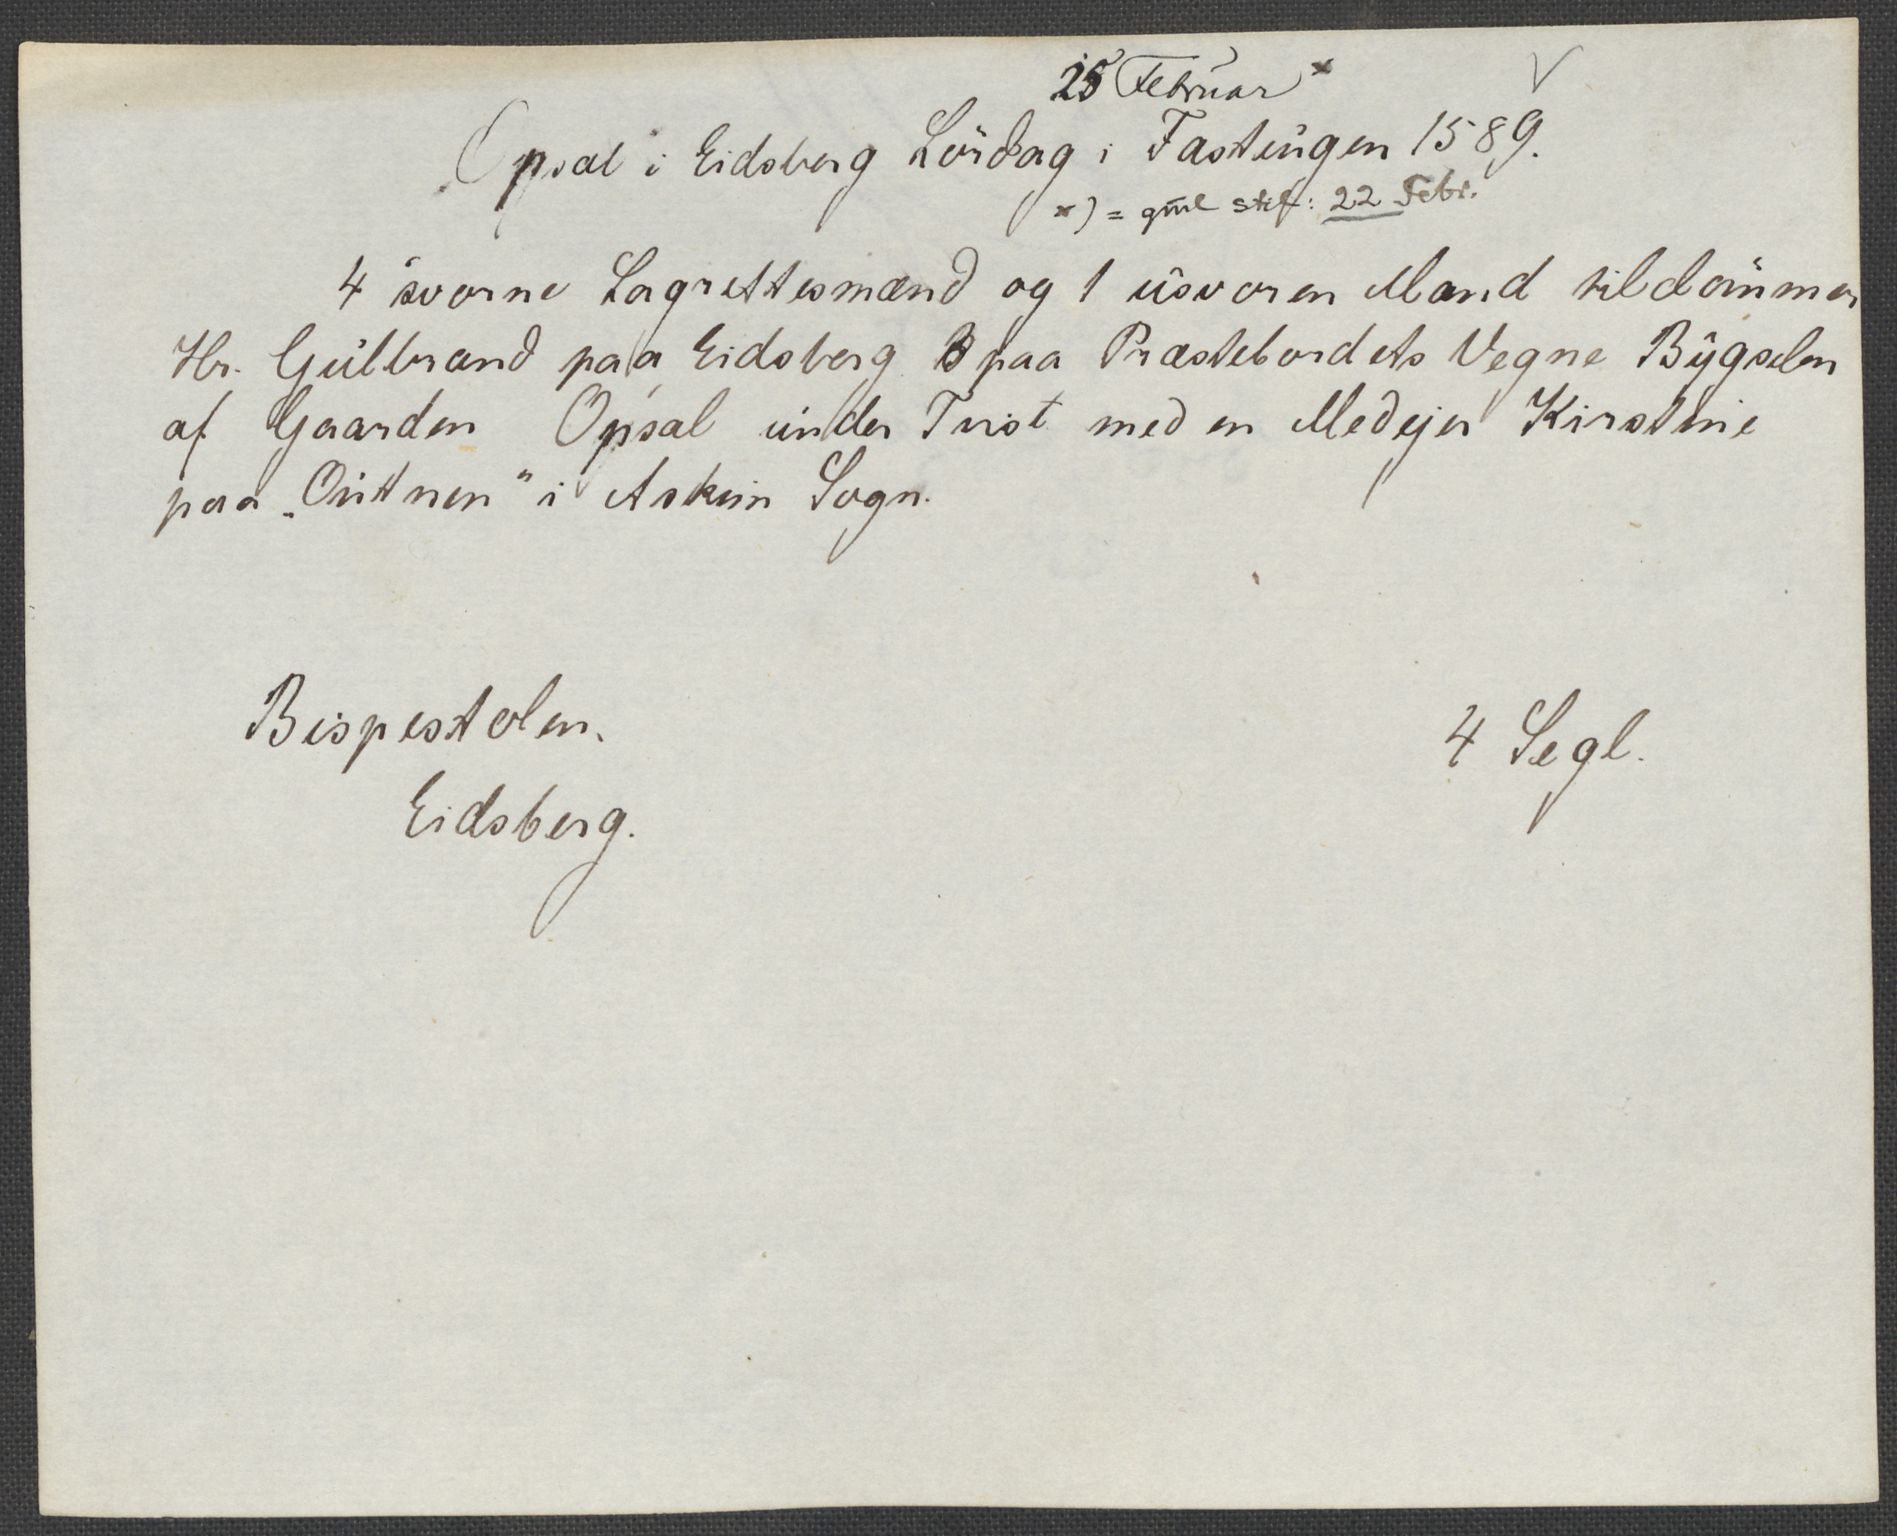 25 Februar x
Opsal i Eidsberg Lördag i Fastingen 1589.
x) = gml stil: 22 Febr.
4 svorne Lagrettesmænd og 1 usvoren Mand tildömmer
Hr. Gulbrand paa Eidsberg paa Præstebordets Vegne Bygselen
af Gaarden Opsal under Tvist med en Medejer Kirstine
paa „Outnen" i Askim Sogn.
Bispestolen.
Eidsberg.
4 Segl.